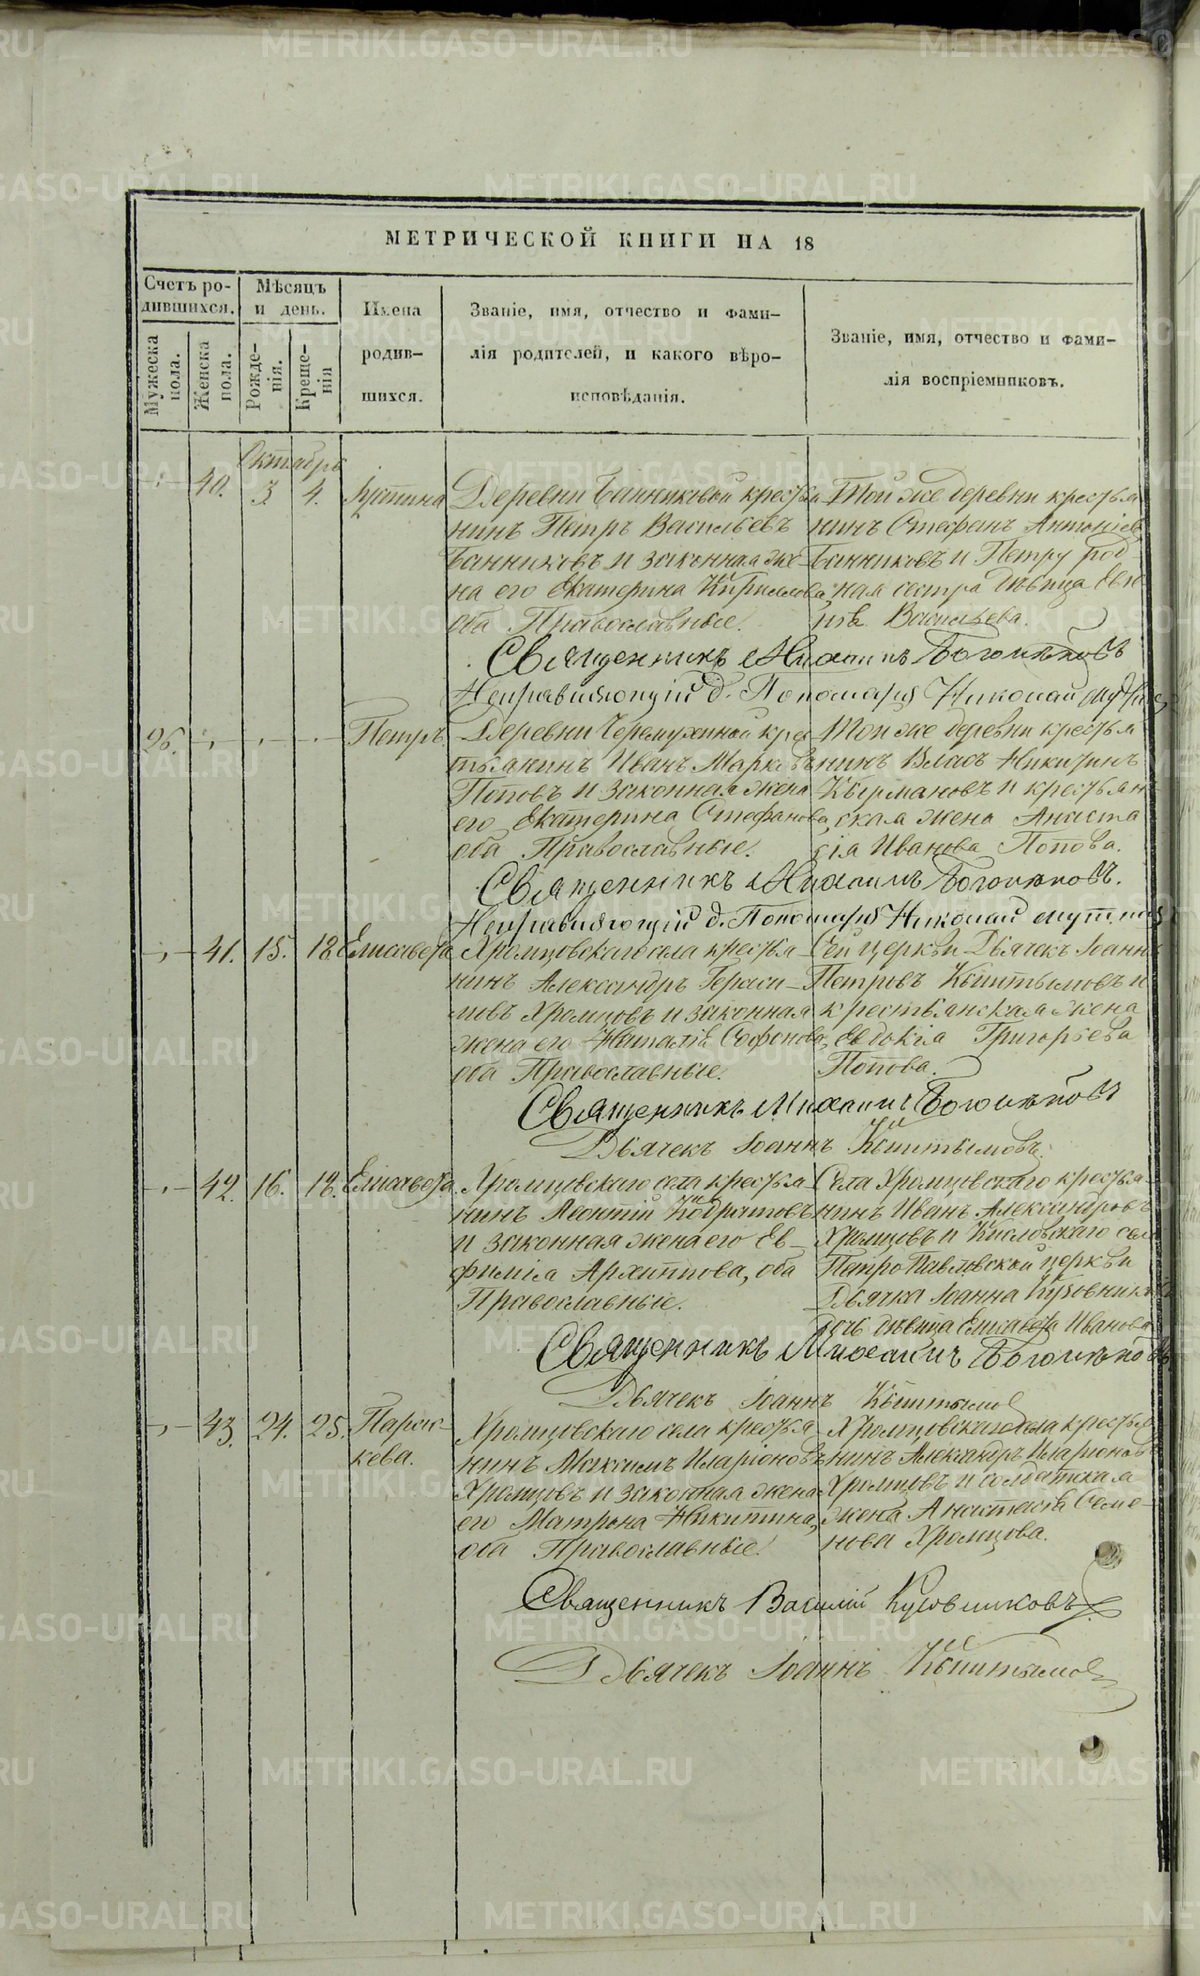 МЕТРИЧЕСКОЙ КНИГИ НА 18
Счетъ родившихся.
Мѣсяцъ и день.
Имена родившихся.
Званіе, имя, отчество и фамилія родителей, и какого вѣроисповѣданія.
Званіе, имя, отчество и фамилія воспріемниковъ.
Мужеска пола.
Женска пола.
Рожденія.
Крещенія
Октябрь
40. 3 4.
Деревни Банниковой крестья
нинъ Петръ Васильевъ
Банниковъ и законная же-
на его Екатерина Кирилова,
оба Православные.
Той же деревни крестья
нинъ Стефанъ Антоніев
Банниковъ и Петру род
ная сестра девица
Васильева.
Священникъ Михаилъ
Исправляющій д. Пономаря Николай
26. Петръ
Деревни Черемухиной крес
тьянинъ Иванъ Марковъ
Поповъ и законная жена
его Екатерина Стефанова,
оба Православные.
Той же деревни крестья
нинъ Власъ Никитинъ
и крестьян
ская жена Анаста
сія Иванова Попова.
Священникъ Михаилъ
Исправляющій д. Пономаря Николай
41. 15. 18 Елисавета
Хромцовскаго села крестья
нинъ Александръ Гераси-
мовъ Хромцовъ и законная
жена его Наталія Софонова,
оба Православные.
Сей церкви Дьячекъ Іоаннъ
Петровъ Кыштымовъ и
крестьянская жена
Евдокія Григорьева
Попова.
Священникъ Михаилъ
Дьячекъ Іоаннъ Кыштымовъ.
42. 16. 18. Елисавета
Хромцовскаго села крестья
нинъ Леонтій Кодратовъ
и законная жена его Ев-
фимія Архиппова, оба
Православные.
Села Хромцовскаго крестья
нинъ Иванъ Александровъ
Хромцовъ и Кисловскаго села
Петро Павловской церкви
Дьячка Іоанна Кузовникова
дочь девица Елисавета Иванова
Священникъ Михаилъ
Дьячекъ Іоаннъ Кыштымов
43. 24. 25. Параск-
кева.
Хромцовскаго села крестья
нинъ Максимъ Иларіоновъ
Хромцовъ и законная жена
его Матрона Никитина,
оба Православные.
Хромцовскаго села крестья
нинъ Александръ Иларіоновъ
Хромцовъ и солдатская
жена Анастасія Семе-
нова Хромцова.
Священникъ Василій Кузовниковъ
Дьячекъ Іоаннъ Кыштымов
METRIKI.GASO-URAL.RU